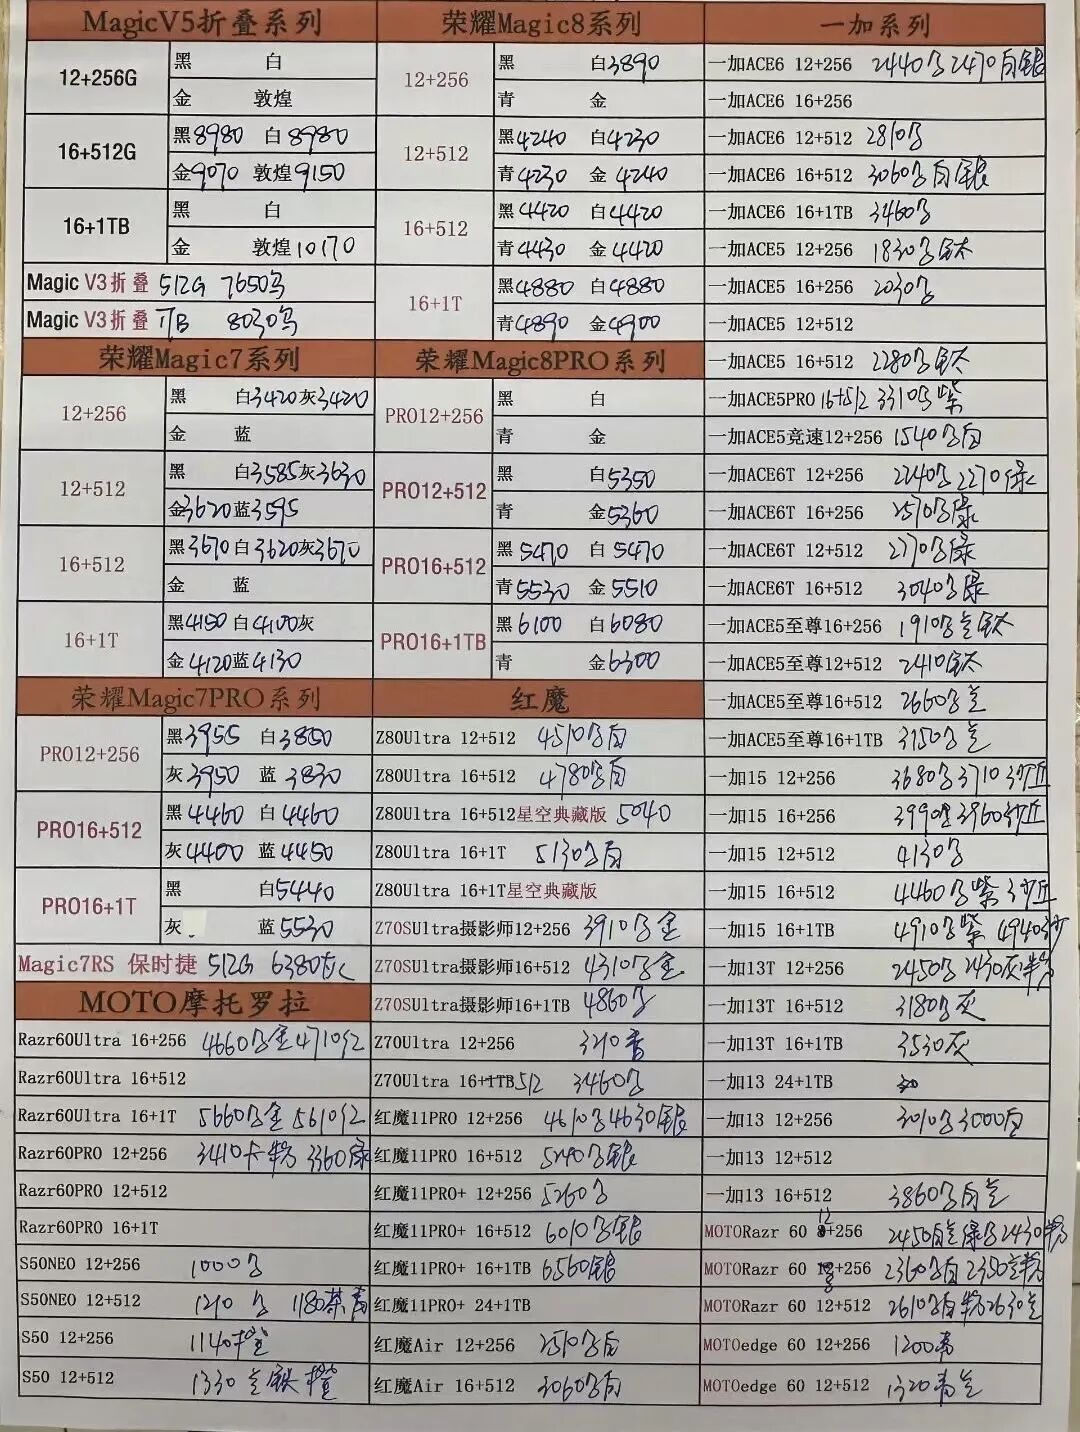 MagicV5折叠系列
12+256G 黑 白
金 敦煌
16+512G 黑8980 白8980
金9070 敦煌9150
16+1TB 黑 白
金 敦煌10170
Magic V3折叠 512G 7650
Magic V3折叠 1TB 8030
荣耀Magic7系列
12+256 黑 白3420灰3420
金 蓝
12+512 黑 白3585灰3630
金3620蓝3595
16+512 黑3670白3620灰3670
金 蓝
16+1T 黑4150白4100灰
金4120蓝4130
荣耀Magic7PRO系列
PRO12+256 黑3955 白3850
灰3950 蓝3830
PRO16+512 黑4460 白4460
灰4400 蓝4450
PRO16+1T 黑 白5440
灰 蓝5530
Magic7RS 保时捷 512G 6380灰
MOTO摩托罗拉
Razr60Ultra 16+256 4660 金4710红
Razr60Ultra 16+512
Razr60Ultra 16+1T 5660 金5610红
Razr60PRO 12+256 3410卡粉3360绿
Razr60PRO 12+512
Razr60PRO 16+1T
S50NEO 12+256 1000
S50NEO 12+512 1210 1180茶青
S50 12+256 1140橙
S50 12+512 1330 橙
荣耀Magic8系列
12+256 黑 白3890
青 金
12+512 黑4240 白4230
青4230 金4240
16+512 黑4420 白4420
青4430 金4420
16+1T 黑4880 白4880
青4890 金4900
荣耀Magic8PRO系列
PRO12+256 黑 白
青 金
PRO12+512 黑 白5350
青 金5360
PRO16+512 黑5470 白5470
青5530 金5510
PRO16+1TB 黑6100 白6080
青 金6300
红魔
Z80Ultra 12+512 4510 白
Z80Ultra 16+512 4780 白
Z80Ultra 16+512星空典藏版 5040
Z80Ultra 16+1T 5130 白
Z80Ultra 16+1T星空典藏版
Z70SUltra摄影师12+256 3910 金
Z70SUltra摄影师16+512 4310 金
Z70SUltra摄影师16+1TB 4860
Z70Ultra 12+256 3210青
Z70Ultra 16+1TB512 3460
红魔11PRO 12+256 4610 4630银
红魔11PRO 16+512 5240 银
红魔11PRO+ 12+256 5260
红魔11PRO+ 16+512 6010 银
红魔11PRO+ 16+1TB 6560银
红魔11PRO+ 24+1TB
红魔Air 12+256 2510 白
红魔Air 16+512 3060 白
一加系列
一加ACE6 12+256 2440 2470白银
一加ACE6 16+256
一加ACE6 12+512 2810
一加ACE6 16+512 3060 白银
一加ACE6 16+1TB 3460
一加ACE5 12+256 1830 钛
一加ACE5 16+256 2030
一加ACE5 12+512
一加ACE5 16+512 2280 钛
一加ACE5PRO 16+512 3310 紫
一加ACE5竞速12+256 1540 白
一加ACE6T 12+256 2240 2270绿
一加ACE6T 16+256 2570 绿
一加ACE6T 12+512 2770 绿
一加ACE6T 16+512 3040 绿
一加ACE5至尊16+256 1910 钛
一加ACE5至尊12+512 2410 钛
一加ACE5至尊16+512 2660
一加ACE5至尊16+1TB 3150
一加15 12+256 3680 3710沙丘
一加15 16+256 3960沙丘
一加15 12+512 4130
一加15 16+512 4460 紫沙丘
一加15 16+1TB 4910 紫 4940沙
一加13T 12+256 2450 2430灰粉
一加13T 16+512 3180 灰
一加13T 16+1TB 3530灰
一加13 24+1TB
一加13 12+256 3010 3000白
一加13 12+512
一加13 16+512 3860 白
MOTORazr 60 12+256 2450 绿 2430粉
MOTORazr 60 +256 2360 白 2350 粉
MOTORazr 60 12+512 2610 白粉2630
MOTOedge 60 12+256 1200青
MOTOedge 60 12+512 1320青